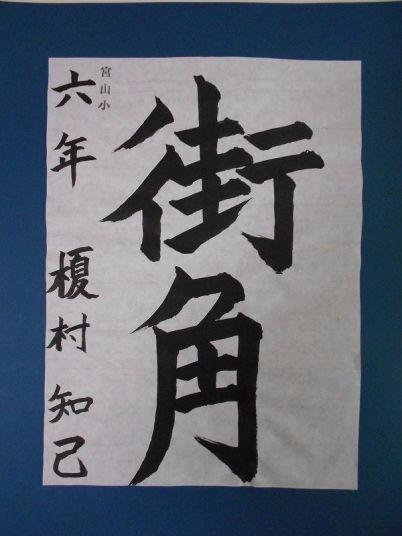 街角
宮山小
六年 榎村 知己